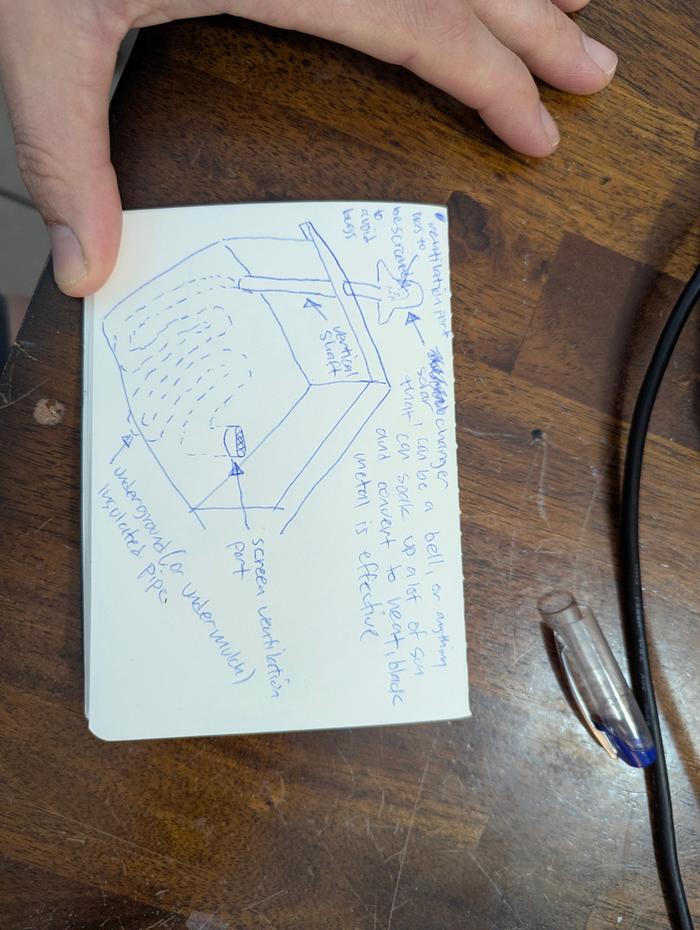 ventilation port
has to
be screened
to
avoid
bugs
solar changer
that can be a bell, or anything
that can soak up a lot of sun
and convert to heat, black
metal is effective
vertical
shaft
screen ventilation
port
underground (or undermulch)
insulated pipe.